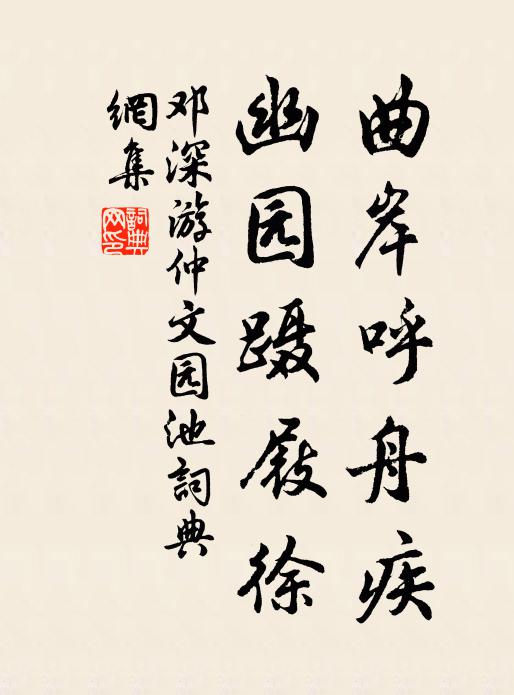 曲岸呼舟疾
幽园蹑屐徐
邓深游仲文园池詞典
網集
詞典
网印